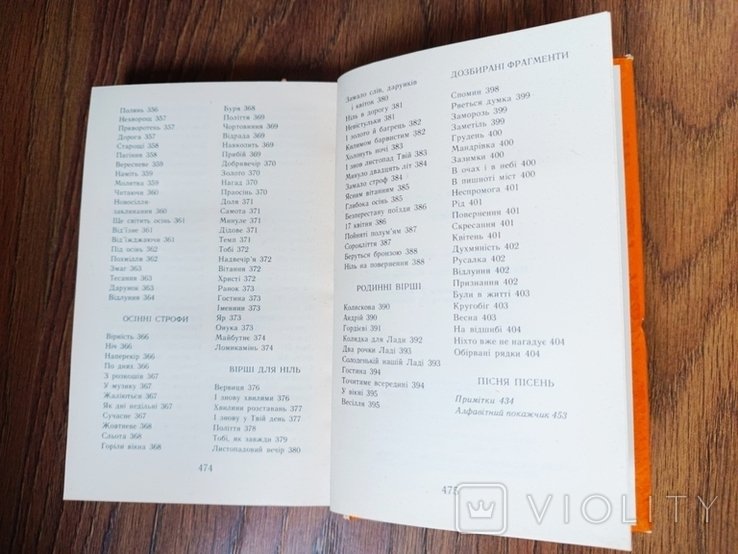 Полинь 356
Нехворощ 357
Приворотень 357
Дорога 357
Старощі 358
Пагіння 358
Вересневе 359
Наміть 359
Молитва 359
Читаючи 360
Новосілля-
заклинання 361
Ще світить осінь 361
Від'їзне 361
Від'їжджаючи 361
Під осінь 362
Похмілля 362
Змаг 363
Тесання 363
Дарунок 363
Відлуння 364
ОСІННІ СТРОФИ
Вірність 366
Ніч 366
Наперекір 366
По днях 366
З розкошів 367
У музику 367
Жаліються 367
Як дні недільні 367
Сучасне 367
Жовтневе 368
Сльота 368
Горіли вікна 368
Буря 368
Поліття 369
Чортовиння 369
Відрада 369
Навкопить 369
Прибій 369
Добривечір 370
Золото 370
Нагад 370
Праосінь 370
Доля 371
Самота 371
Минуле 371
Дідове 371
Теми 371
Тобі 372
Надвечір'я 372
Вітання 372
Христі 372
Ранок 373
Гостина 373
Іменини 373
Яр 373
Онука 374
Майбутнє 374
Ломикамінь 374
ВІРШІ ДЛЯ НІЛЬ
Вервиця 376
І знову хвилями 376
Хвилини розставань 377
І знову у Твій день 377
Поліття 378
Тобі, як завжди 379
Листопадовий вечір 380
474
Замало слів, дарунків
і квіток 380
Ніль в дорогу 381
Невістульки 381
І золото й багрець 382
Килимом барвистим 382
Холонуть ночі 383
І знов листопад Твій 383
Минуло двадцять літ 384
Замало строф 384
Ясним вітанням 385
Глибока осінь 385
Безперестану поїзди 386
17 квітня 386
Пойняті полум'ям 387
Сорокліття 387
Беруться бронзою 388
Ніль на повернення 388
РОДИННІ ВІРШІ
Колискова 390
Андрій 390
Гордієві 391
Колядка для Лади 392
Два рочки Ладі 393
Солоденькій нашій Ладі 393
Гостина 394
Точитиме всередині 394
У вікні 395
Весілля 395
ДОЗБИРАНІ ФРАГМЕНТИ
Спомин 398
Рветься думка 399
Заморозь 399
Заметіль 399
Грудень 400
Мандрівка 400
Зазимки 400
В очах і в небі 400
В пишноті міст 400
Неспромога 401
Рід 401
Повернення 401
Скресання 401
Квітень 401
Духмяність 402
Русалка 402
Відлуння 402
Признання 402
Були в житті 403
Кругобіг 403
Весна 403
На відшибі 404
Ніхто вже не нагадує 404
Обірвані рядки 404
ПІСНЯ ПІСЕНЬ
Примітки 434
Алфавітний покажчик 453
475
VIOLITY